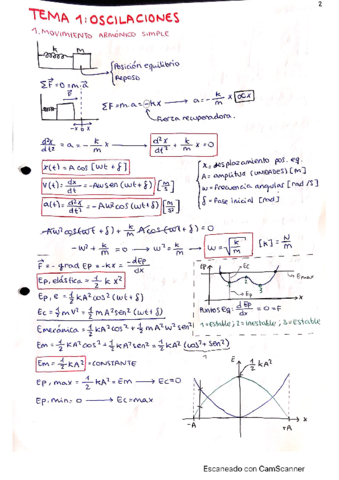 2
TEMA 1: OSCILACIONES
1. MOVIMIENTO ARMÓNICO SIMPLE
k
m
Posición equilibrio
Reposo
ΣF⃗ = 0 = m·a⃗
F⃗
-x 0 x
ΣF = m·a = -kx → a = -k/m x
Fuerza recuperadora.
d²x/dt² = a = -k/m x → d²x/dt² + k/m x = 0
x(t) = A cos [wt + δ]
V(t) = dx/dt = -Aw sen (wt + δ) [m/s]
a(t) = d²x/dt² = -Aw² cos (wt + δ) [m/s²]
x, desplazamiento pos. eq.
A = amplitud (UNIDADES) [m]
w = Frecuencia angular [rad/s]
δ = Fase inicial [rad]
-Aw² cos(wt + δ) + k/m A cos(wt + δ) = 0
-w² + k/m = 0 → w² = k/m → w = √(k/m) [K] = N/m
F⃗ = -grad EP = -kx = -dEp/dx
Ep, elástica = 1/2 k x²
Ep, e = 1/2 kA² cos² (wt + δ)
Ec = 1/2 mV² = 1/2 mA² sen² (wt + δ)
Emecánica = 1/2 kA² cos² + 1/2 m A² w² sen²
Em = 1/2 kA² cos² + 1/2 kA² sen² = 1/2 kA² (cos² + sen²)
1
Em = 1/2 kA² = CONSTANTE
Ep, max = 1/2 kA² = Em → Ec = 0
Ep. min = 0 → Ec = max
EP
Ec
Emax
Ep
x
Puntos Eq: dEp/dx = 0 = F
1 = estable; 2 = inestable; 3 = Estable
E
1/2 kA²
-A
+A
x
Escaneado con CamScanner